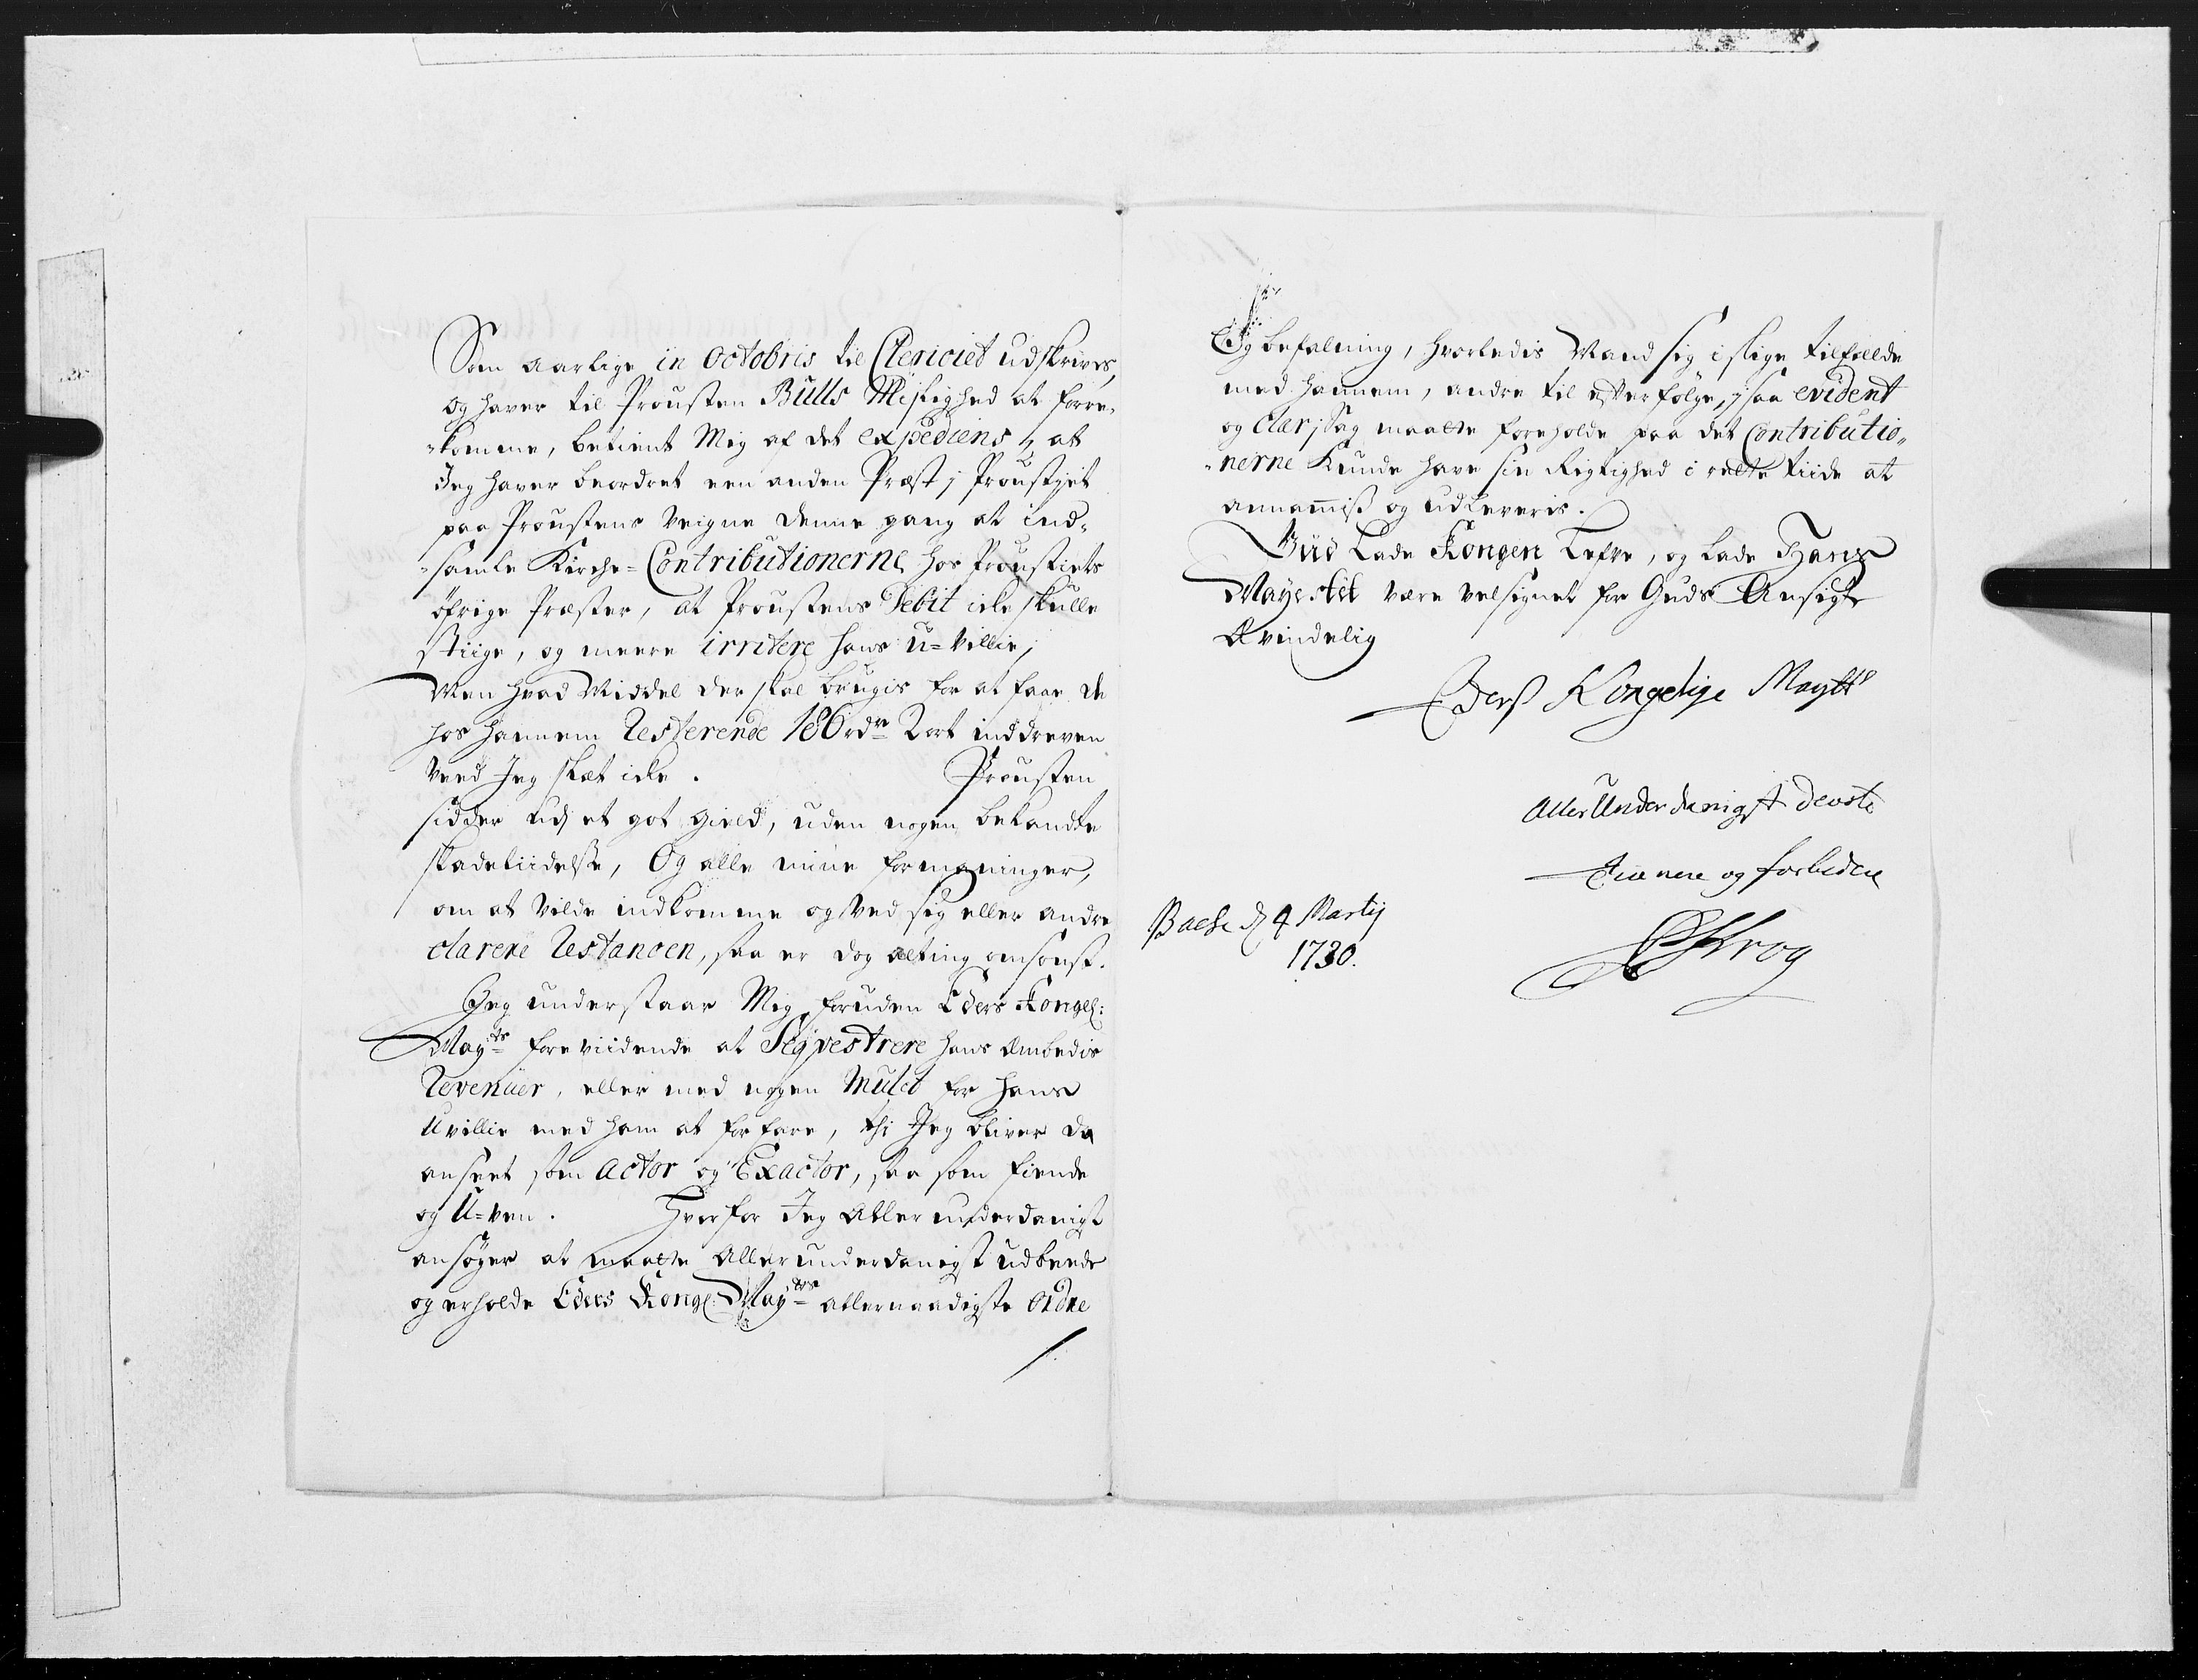 Som aarlige in Octobris til Clericiet udskrives,
og haver til Prousten Bulls Mislighed at forre-
-komme, betient Mig af det expediens, at
Jeg haver beordret een anden Præst i Proustiet
paa Proustens Veigne denne gang at ind-
-samle Kirche-Contributionerne hos Proustiets
öfrige Præster, at Proustens Debit icke skulle
stiige, og meere irritere hans u-villie,
Men hvad Middel der skal brugis for at faae de
hos hannem Resterende 186 rdr 2 ort inddreven
veed Jeg slæt icke. Prousten
sidder udj et got gield, uden nogen bekandte
skadeliidelse, Og alle mine formaninger,
om at vilde indkomme og ved sig eller andre
clarere Restancen, saa er dog alting omsonst.
Jeg understaar Mig foruden Eders Kongel:
Mayts foreviidende at Seqvestrere hans Embedis
Revenuer, eller med nogen Mulct for hans
Uvillie med ham at forfare, thi Jeg bliver da
anseet som Actor og Exactor, saa som fiende
og U-ven. Hvorfor Jeg Allerunderdanigst
ansöger at maatte Allerunderdanigst udbeede
og erholde Eders Kongl: Mayts allernaadigste Ordre
Og befalning, hvorledis Mand sig i slige tilfælde
med hannem, andre til efterfölge, i saa evident
og clar Sag maatte forholde paa det Contributio-
-nerne Kunde have sin Rigtighed i rette tiide at
annammis og udleveris.
Gud Lade Kongen Lefve, og lade Hans
Mayestet være velsignet for Guds Ansigt
Ævindelig
Ders Kongelige Maytts
Aller Underdanigst devote
Tienere og forbedere
Bache d 4 Martij
1730.
Krog